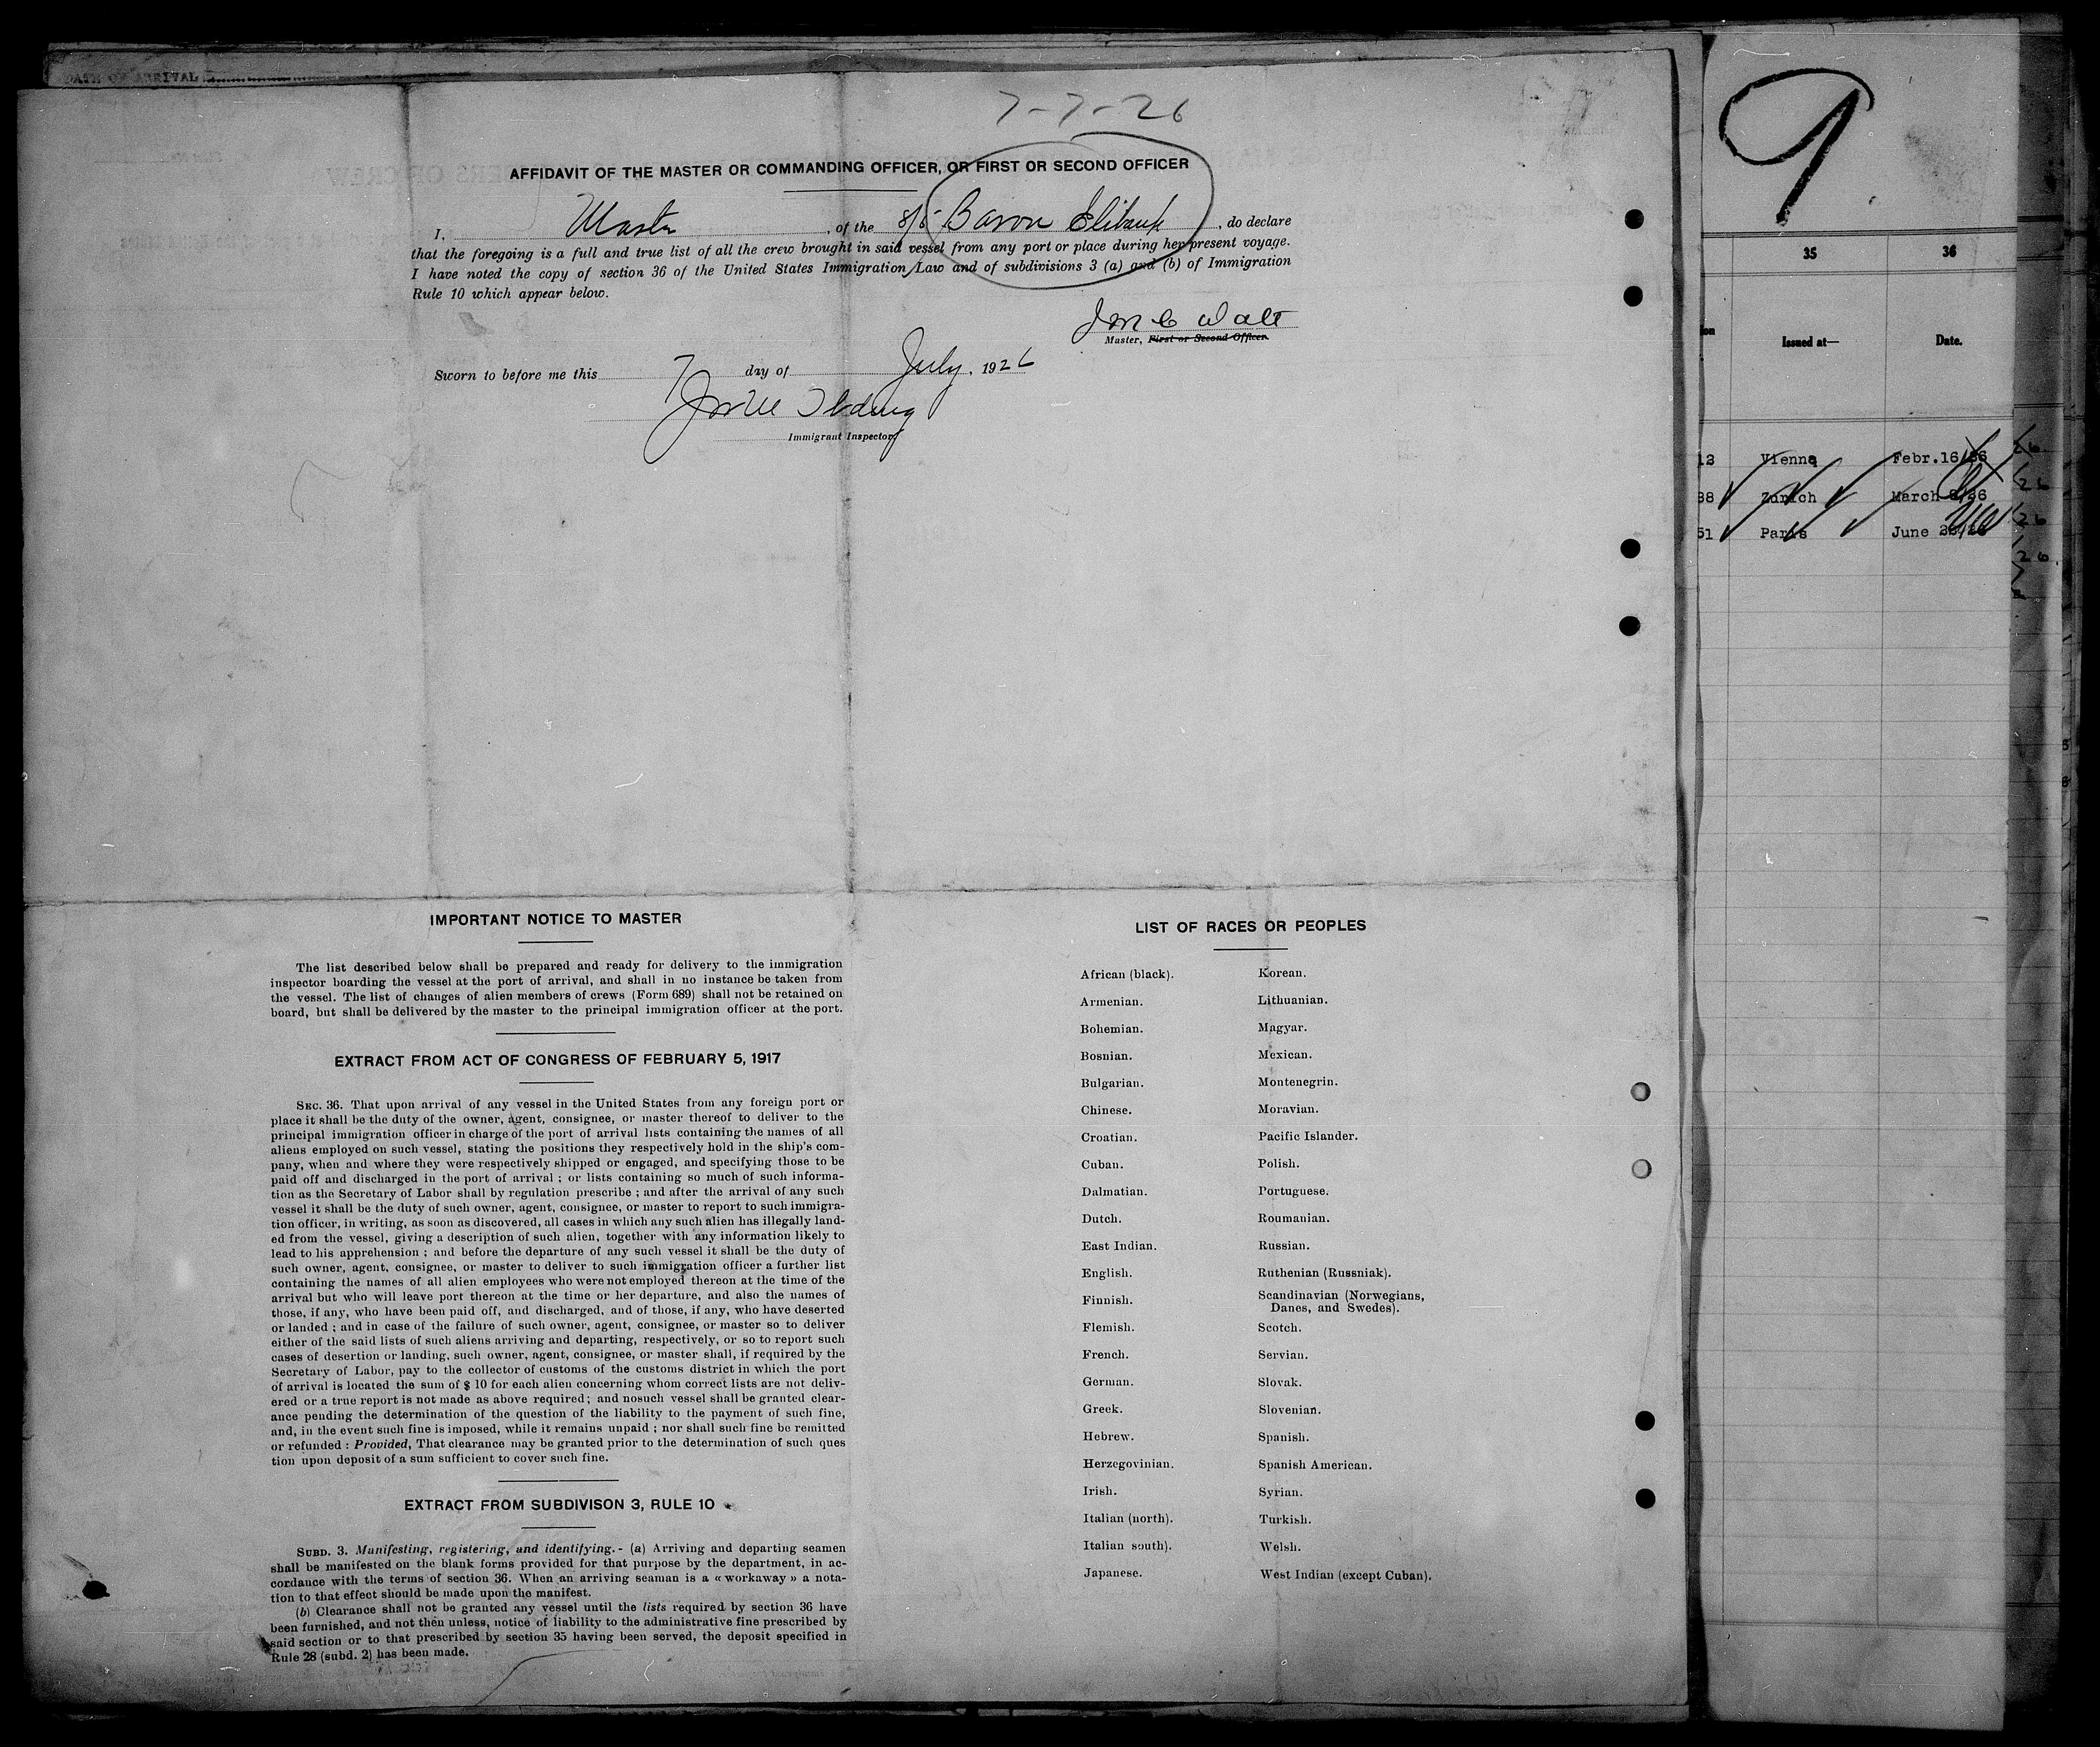 DATE OF ARRIVAL
7-7-26
AFFIDAVIT OF THE MASTER OR COMMANDING OFFICER, OR FIRST OR SECOND OFFICER
I, Master, of the S/S Baron Elibank, do declare
that the foregoing is a full and true list of all the crew brought in said vessel from any port or place during her present voyage.
I have noted the copy of section 36 of the United States Immigration Law and of subdivisions 3 (a) and (b) of Immigration
Rule 10 which appear below.
Master, First or Second Officer.
Sworn to before me this 7 day of July, 1926
Immigrant Inspector
IMPORTANT NOTICE TO MASTER
The list described below shall be prepared and ready for delivery to the immigration
inspector boarding the vessel at the port of arrival, and shall in no instance be taken from
the vessel. The list of changes of alien members of crews (Form 689) shall not be retained on
board, but shall be delivered by the master to the principal immigration officer at the port.
EXTRACT FROM ACT OF CONGRESS OF FEBRUARY 5, 1917
SEC. 36. That upon arrival of any vessel in the United States from any foreign port or
place it shall be the duty of the owner, agent, consignee, or master thereof to deliver to the
principal immigration officer in charge of the port of arrival lists containing the names of all
aliens employed on such vessel, stating the positions they respectively hold in the ship's com-
pany, when and where they were respectively shipped or engaged, and specifying those to be
paid off and discharged in the port of arrival ; or lists containing so much of such informa-
tion as the Secretary of Labor shall by regulation prescribe ; and after the arrival of any such
vessel it shall be the duty of such owner, agent, consignee, or master to report to such immigra-
tion officer, in writing, as soon as discovered, all cases in which any such alien has illegally land-
ed from the vessel, giving a description of such alien, together with any information likely to
lead to his apprehension ; and before the departure of any such vessel it shall be the duty of
such owner, agent, consignee, or master to deliver to such immigration officer a further list
containing the names of all alien employees who were not employed thereon at the time of the
arrival but who will leave port thereon at the time or her departure, and also the names of
those, if any, who have been paid off, and discharged, and of those, if any, who have deserted
or landed ; and in case of the failure of such owner, agent, consignee, or master so to deliver
either of the said lists of such aliens arriving and departing, respectively, or so to report such
cases of desertion or landing, such owner, agent, consignee, or master shall, if required by the
Secretary of Labor, pay to the collector of customs of the customs district in which the port
of arrival is located the sum of $ 10 for each alien concerning whom correct lists are not deliv-
ered or a true report is not made as above required; and nosuch vessel shall be granted clear-
ance pending the determination of the question of the liability to the payment of such fine,
and, in the event such fine is imposed, while it remains unpaid ; nor shall such fine be remitted
or refunded : Provided, That clearance may be granted prior to the determination of such ques
tion upon deposit of a sum sufficient to cover such fine.
EXTRACT FROM SUBDIVISON 3, RULE 10
SUBD. 3. Manifesting, registering, and identifying.- (a) Arriving and departing seamen
shall be manifested on the blank forms provided for that purpose by the department, in ac-
cordance with the terms of section 36. When an arriving seaman is a « workaway » a nota-
tion to that effect should be made upon the manifest.
(b) Clearance shall not be granted any vessel until the lists required by section 36 have
been furnished, and not then unless, notice of liability to the administrative fine prescribed by
said section or to that prescribed by section 35 having been served, the deposit specified in
Rule 28 (subd. 2) has been made.
LIST OF RACES OR PEOPLES
African (black).
Armenian.
Bohemian.
Bosnian.
Bulgarian.
Chinese.
Croatian.
Cuban.
Dalmatian.
Dutch.
East Indian.
English.
Finnish.
Flemish.
French.
German.
Greek.
Hebrew.
Herzegovinian.
Irish.
Italian (north).
Italian south).
Japanese.
Korean.
Lithuanian.
Magyar.
Mexican.
Montenegrin.
Moravian.
Pacific Islander.
Polish.
Portuguese.
Roumanian.
Russian.
Ruthenian (Russniak).
Scandinavian (Norwegians,
Danes, and Swedes).
Scotch.
Servian.
Slovak.
Slovenian.
Spanish.
Spanish American.
Syrian.
Turkish.
Welsh.
West Indian (except Cuban).
9
35 36
Issued at— Date.
Vienna Febr.16/26
Zurich March
Paris June